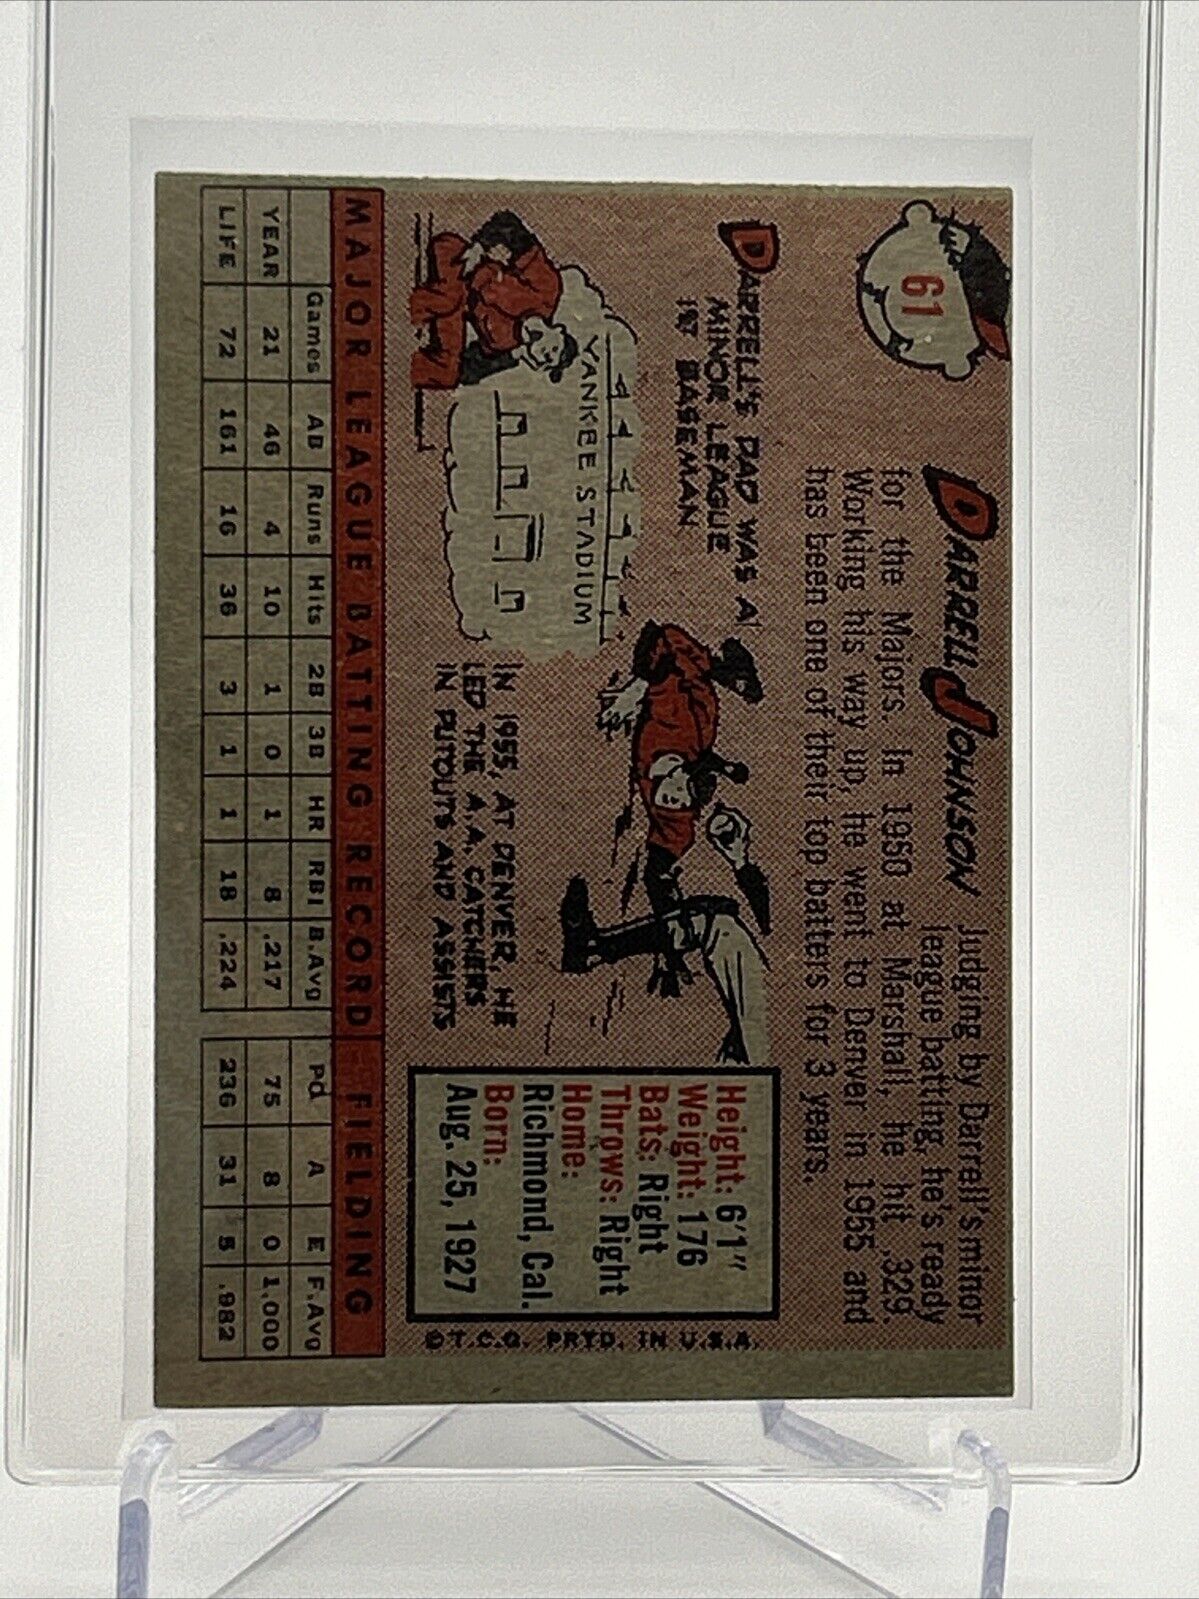 61
DARRELL JOHNSON
Judging by Darrell's minor
league batting, he's ready
for the Majors. In 1950 at Marshall, he hit .329.
Working his way up, he went to Denver in 1955 and
has been one of their top batters for 3 years.
DARRELL'S DAD WAS A
MINOR LEAGUE
1ST BASEMAN
YANKEE STADIUM
IN 1955, AT DENVER, HE
LED THE A.A. CATCHERS
IN PUTOUTS AND ASSISTS
Height: 6'1"
Weight: 176
Bats: Right
Throws: Right
Home:
Richmond, Cal.
Born:
Aug. 25, 1927
© T.C.G. PRTD. IN U.S.A.
MAJOR LEAGUE BATTING RECORD FIELDING
Games AB Runs Hits 2B 3B HR RBI B.Avg Pd A E F.Avg
YEAR 21 46 4 10 1 0 1 8 .217 75 8 0 1.000
LIFE 72 161 16 36 3 1 1 18 .224 236 31 5 .982